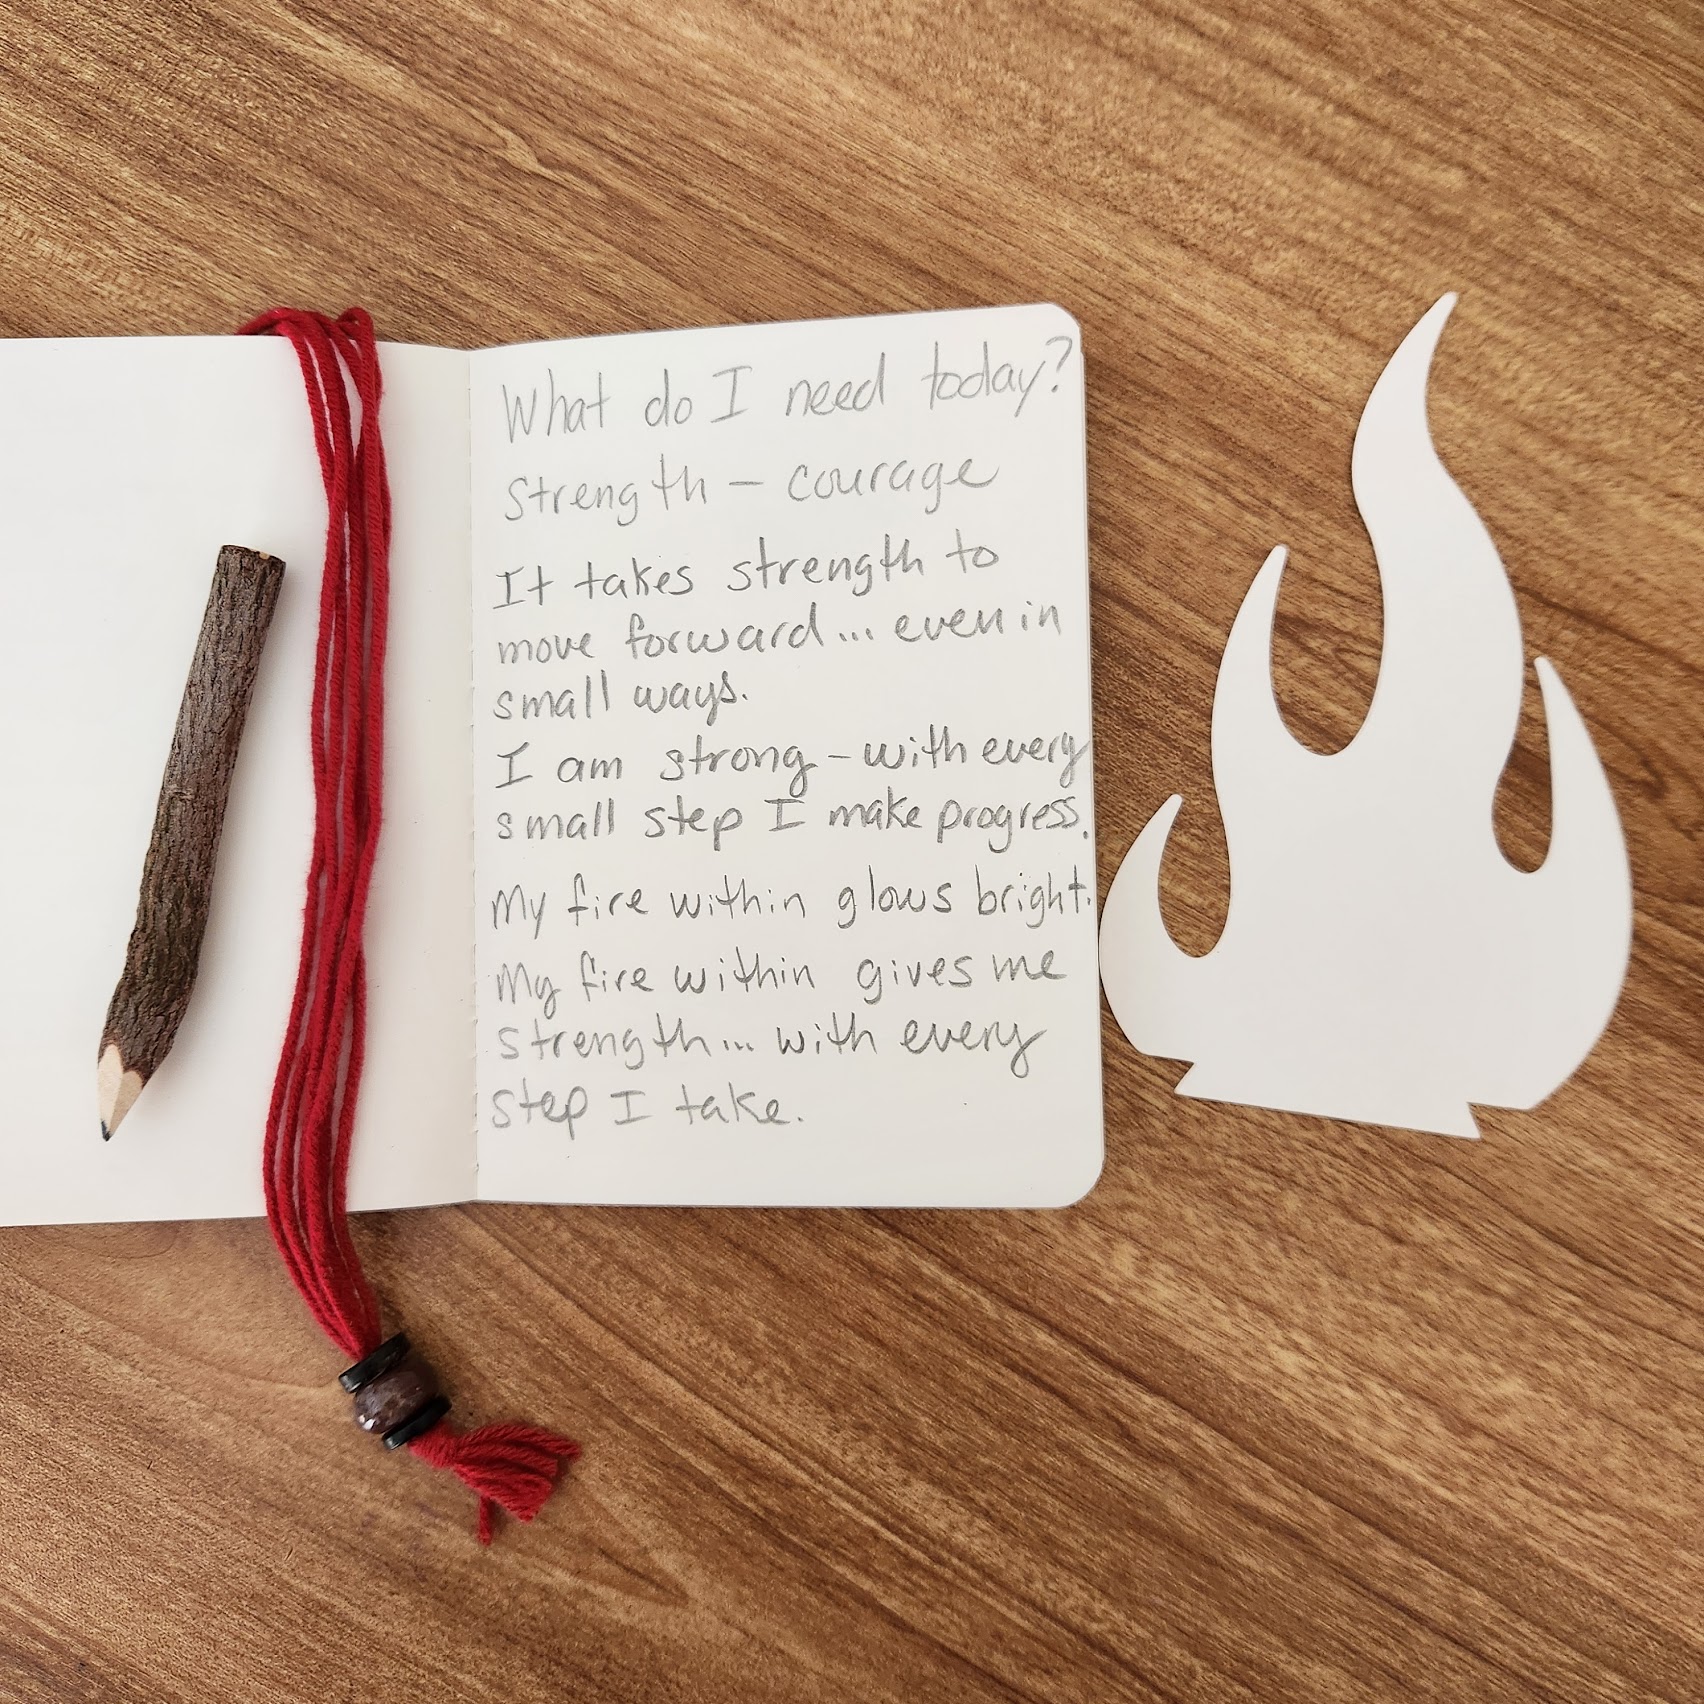 What do I need today?
Strength – courage
It takes strength to
move forward... even in
small ways.
I am strong – with every
small step I make progress.
My fire within glows bright.
My fire within gives me
strength... with every
step I take.